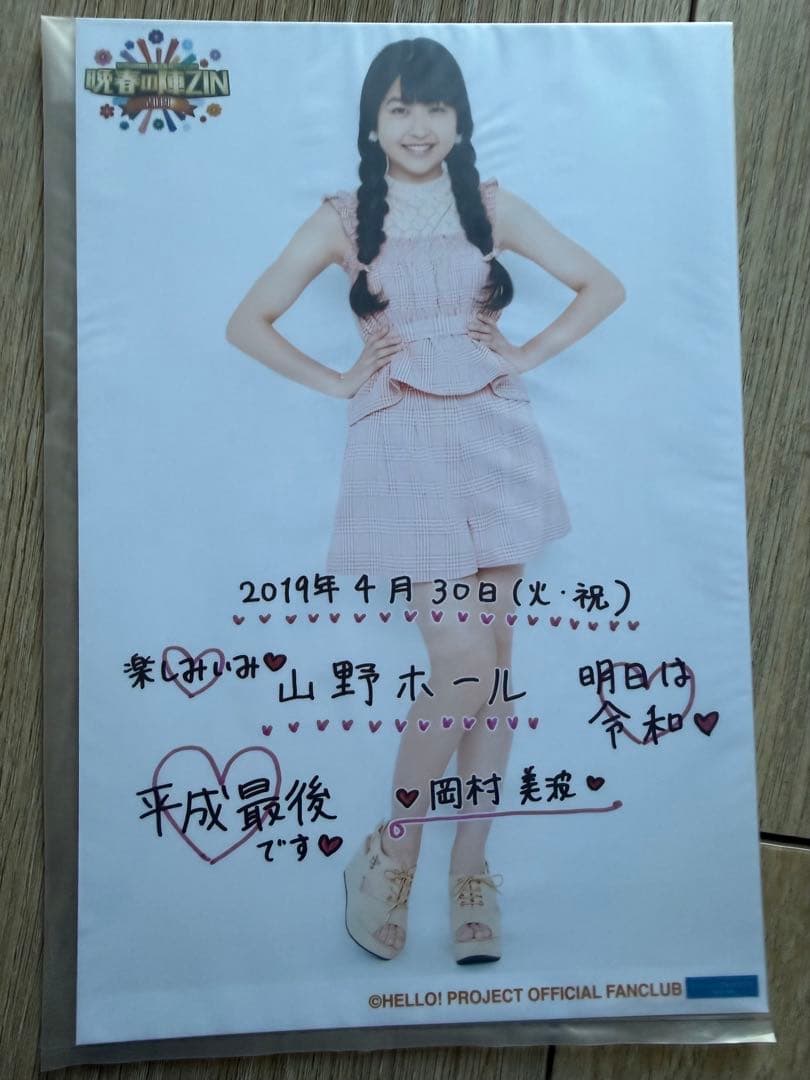 晩春の陣ZIN
2019
2019年4月30日(火・祝)
楽しみぃみ♥
山野ホール
明日は
令和♥
平成最後
です♥
♥岡村美波♥
©HELLO! PROJECT OFFICIAL FANCLUB